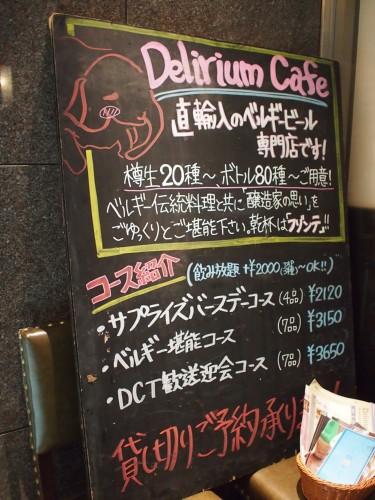 Delirium Cafe
直輸入のベルギービール
専門店です!
樽生20種〜、ボトル80種〜ご用意!
ベルギー伝統料理と共に「醸造家の思い」を
ごゆっくりとご堪能下さい。乾杯は「プゾンテ」!!
コース紹介 (飲み放題 +¥2000 〜OK!!)
・サプライズバースデーコース (4品) ¥2120
・ベルギー堪能コース (7品) ¥3150
・DCT歓送迎会コース (7品) ¥3650
貸し切りご予約承り